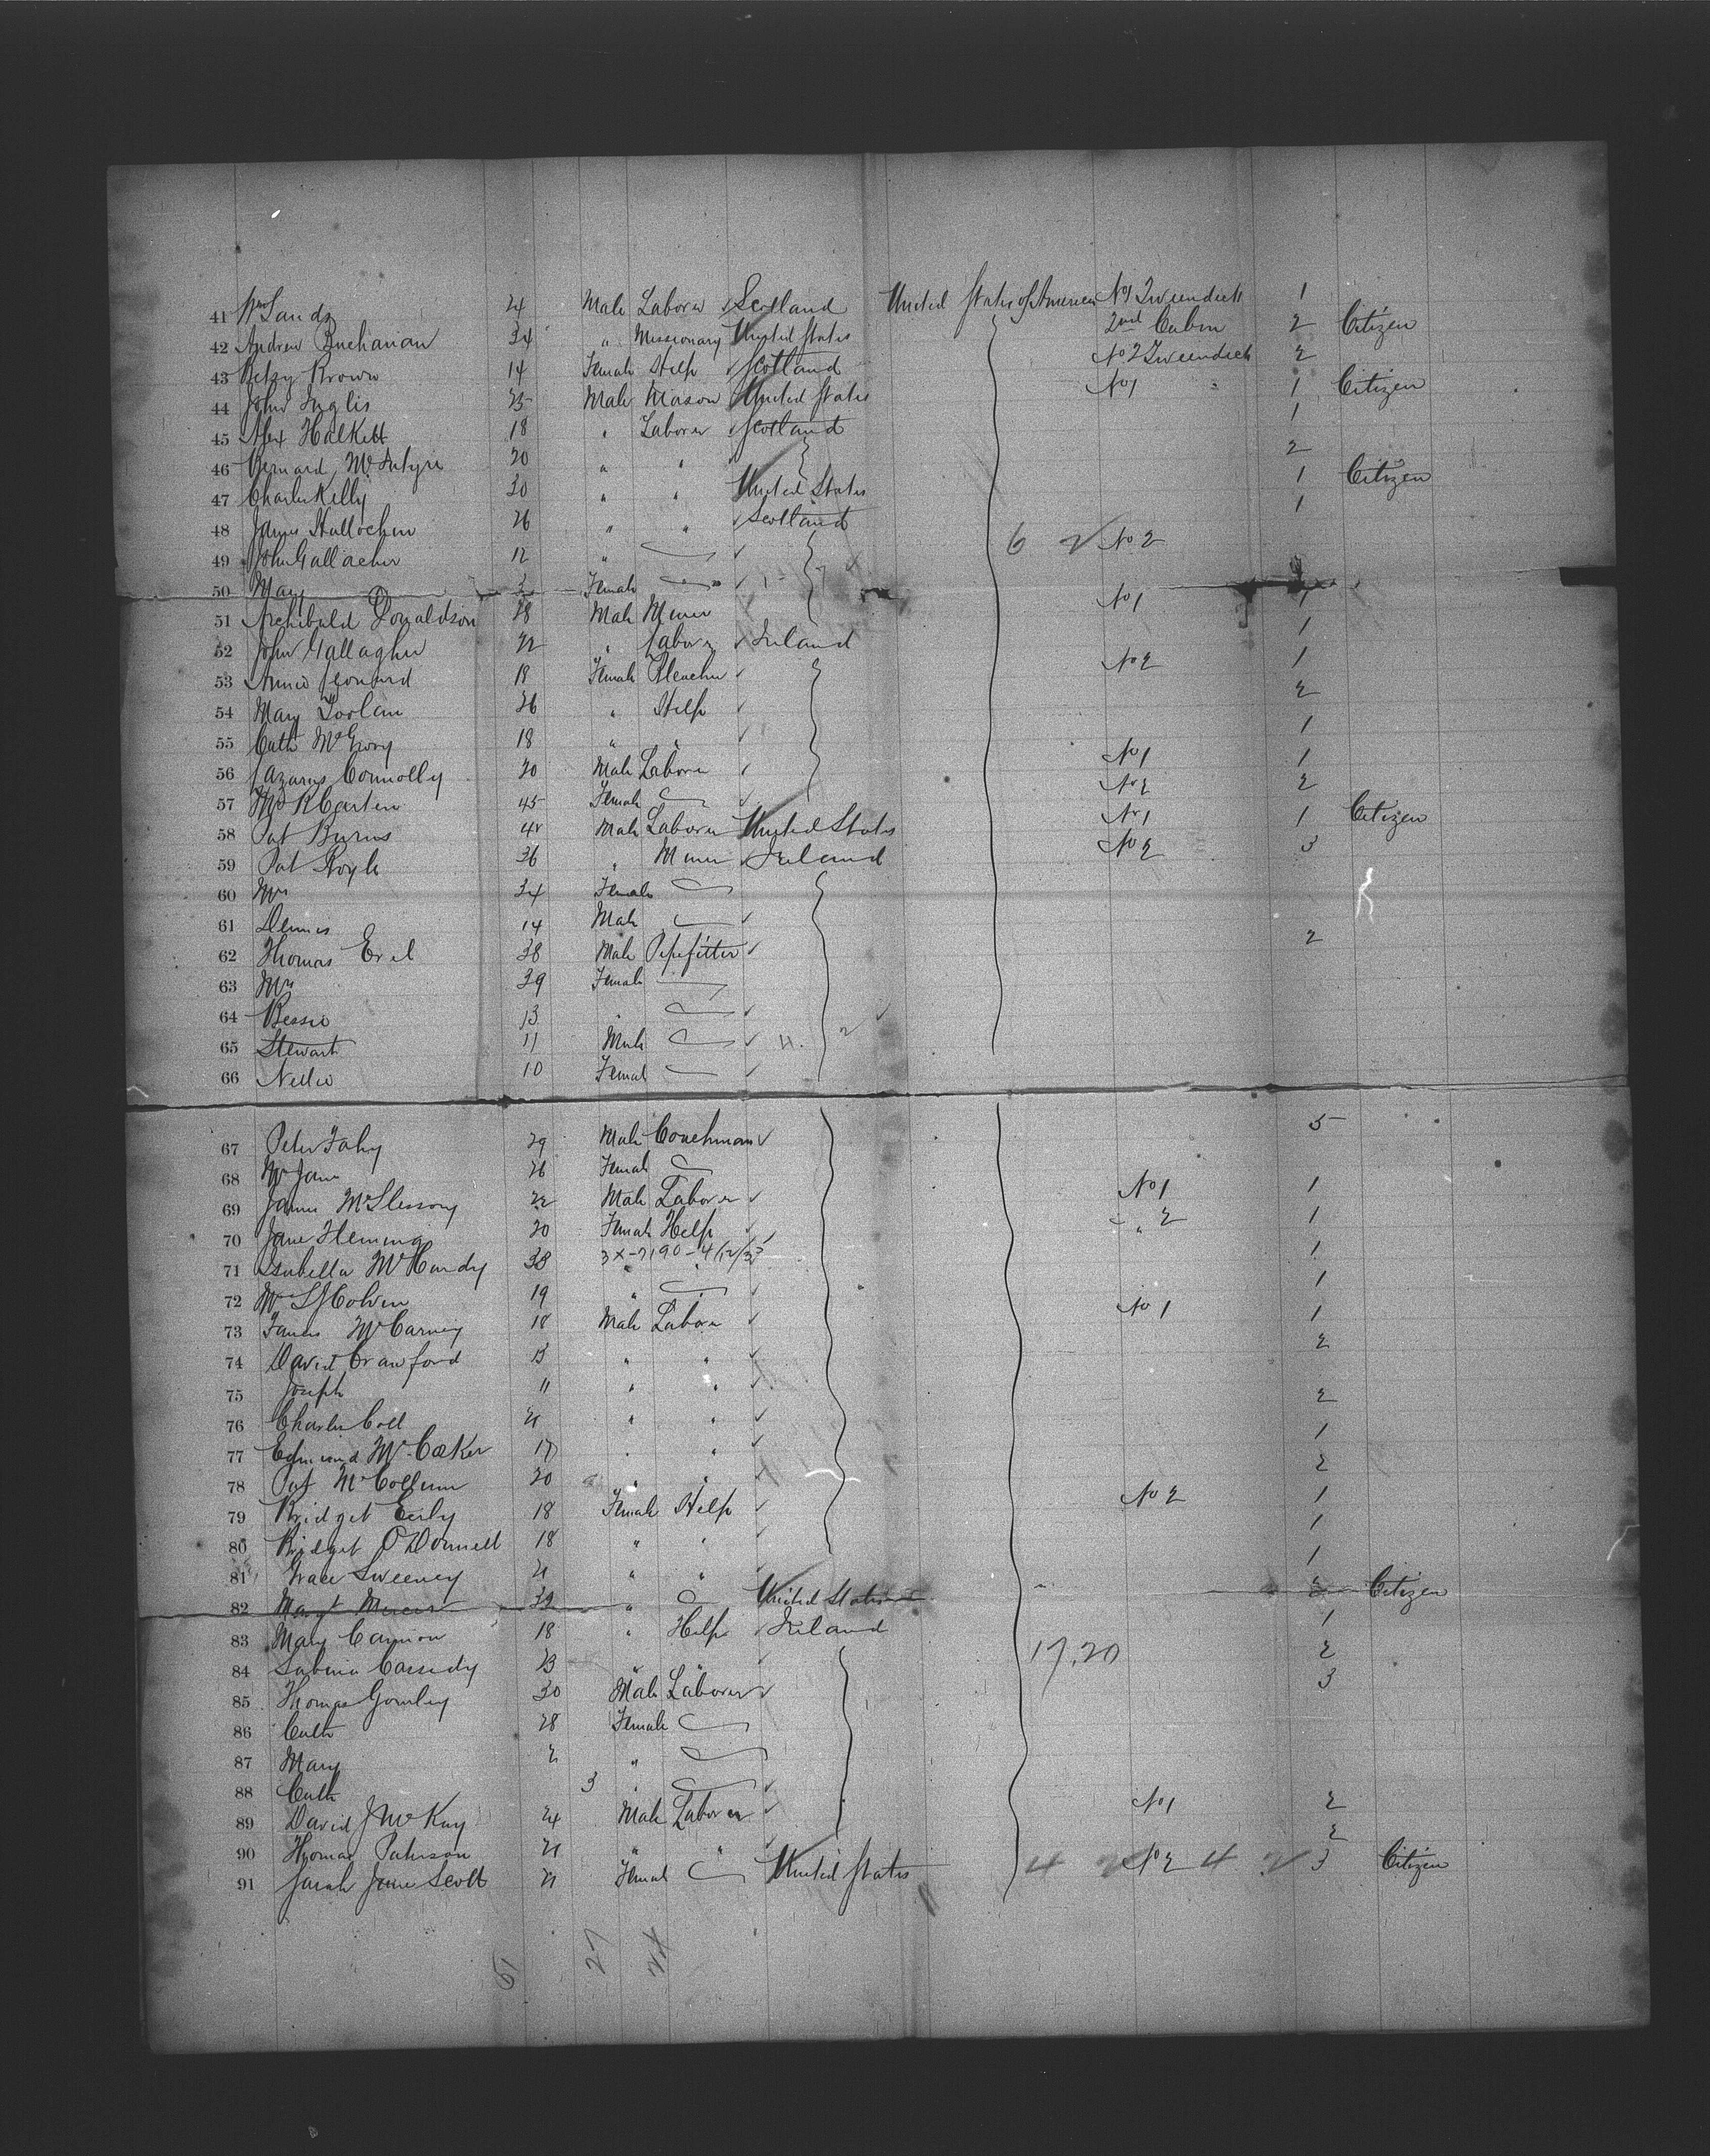 41 Wm Sands 24 Male Laborer Scotland United States of America No 1 Tweendeck 1
42 Andrew Buchanan 34 " Missionary United States 2nd Cabin 2 Citizen
43 Betsy Brown 14 Female Help Scotland No 2 Tweendeck 2
44 John Inglis 25 Male Mason United States No 1 " 1 Citizen
45 Alex Halkett 18 " Laborer Scotland 1
46 Bernard McIntyre 20 " " 2
47 Charles Kelly 30 " " United States 1 Citizen
48 James 26 " " Scotland 1
49 John Gallacher 12 " 6 2 No 2
50 Mary 3 Female
51 Archibald Donaldson 28 Male Miner No 1 1
52 John Gallagher 22 " Labor Ireland 1
53 Annie Leonard 18 Female Bleacher No 2 1
54 Mary 26 " Help 2
55 Cath 18 " " 1
56 Lazarus Connolly 20 Male Laborer No 1 1
57 45 Female No 2 2
58 Pat Burns 42 Male Laborer United States No 1 1 Citizen
59 Pat Boyle 36 " Miner Ireland No 2 3
60 Mrs 34 Female
61 Dennis 14 Male
62 Thomas 38 Male Pipefitter 2
63 Mrs 39 Female
64 Bessie 13 "
65 Stewart 11 Male 11. 2
66 Nellie 10 Female
67 Peter Fahy 29 Male Coachman 5
68 Jane 26 Female
69 James 22 Male Laborer No 1 1
70 Jane Fleming 20 Female Help " 2 1
71 Isabella McHardy 38 3X-7190-4/12/33 1
72 19 " 1
73 James McCarney 18 Male Laborer No 1 1
74 David Crawford 13 " " 2
75 Joseph 11 " "
76 Charles Coll 21 " " 2
77 Edmund 17 " " 1
78 Pat McCollum 20 " " 2
79 Bridget 18 Female Help No 2 1
80 Bridget O'Donnell 18 " " 1
81 Grace Sweeney 21 " " 1
82 Margt Mercer 32 " United States 2 Citizen
83 Mary Cannon 18 " Help Ireland 1
84 Sabina Cassidy 13 " " 17,20 2
85 Thomas Gormley 30 Male Laborer 3
86 Cath 28 Female
87 Mary 2 "
88 Cath 3 "
89 David J McKay 24 Male Laborer No 1 2
90 Thomas Paterson 21 " " 2
91 Sarah Jane Scott 21 Female United States 4 2 No 2 4 2 3 Citizen
27 24